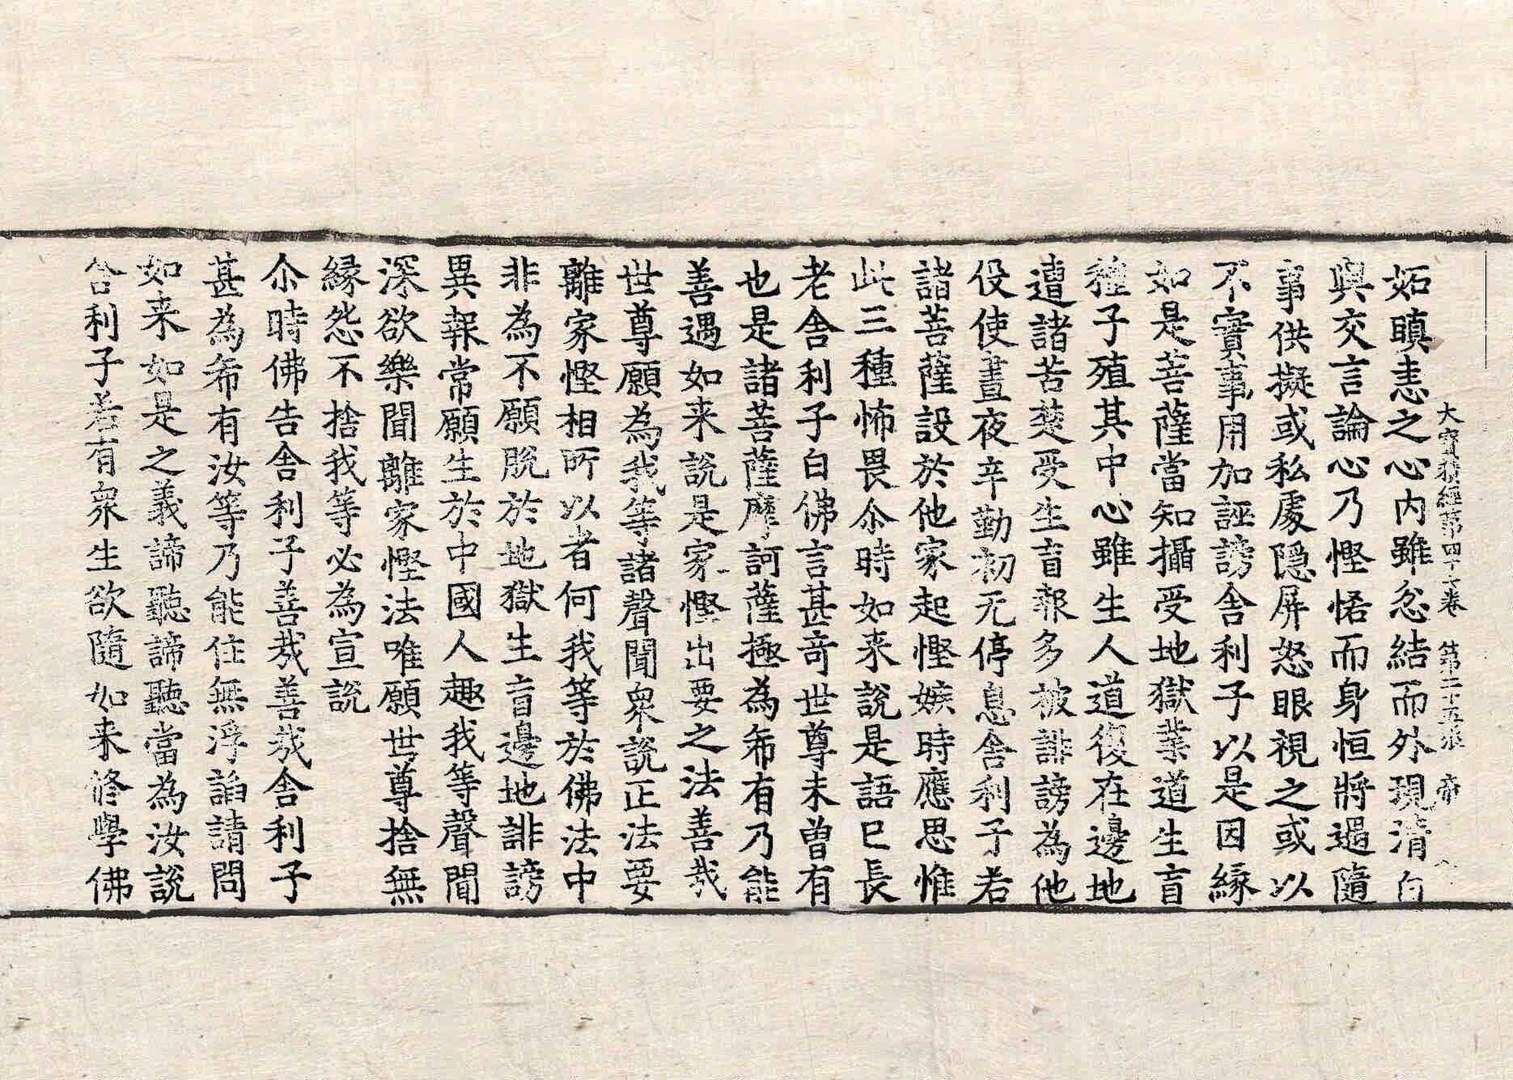 大寶積經第四十七卷 第二十五張 帝
妬瞋恚之心内雖忿結而外現清白
與交言論心乃慳悋而身恒將遝隨
事供擬或私處隱屏怒眼視之或以
不實事用加誣謗舍利子以是因縁
如是菩薩當知攝受地獄業道生盲
種子殖其中心雖生人道復在邊地
遭諸苦楚受生盲報多被誹謗為他
伇使晝夜辛勤初无停息舍利子若
諸菩薩設於他家起慳嫉時應思惟
此三種怖畏尒時如来說是語已長
老舍利子白佛言甚奇世尊未曽有
也是諸菩薩摩訶薩極為希有乃能
善遇如来說是家慳出要之法善㢤
世尊願為我等諸聲聞衆說正法要
離家慳相所以者何我等於佛法中
非為不願脫於地獄生盲邊地誹謗
異報常願生於中國人趣我等聲聞
深欲樂聞離家慳法唯願世尊捨無
縁怨不捨我等必為宣說
尒時佛告舍利子善㢤善㢤舍利子
甚為希有汝等乃能住無浮諂請問
如来如是之義諦聽諦聽當為汝說
舍利子若有衆生欲隨如来修學佛